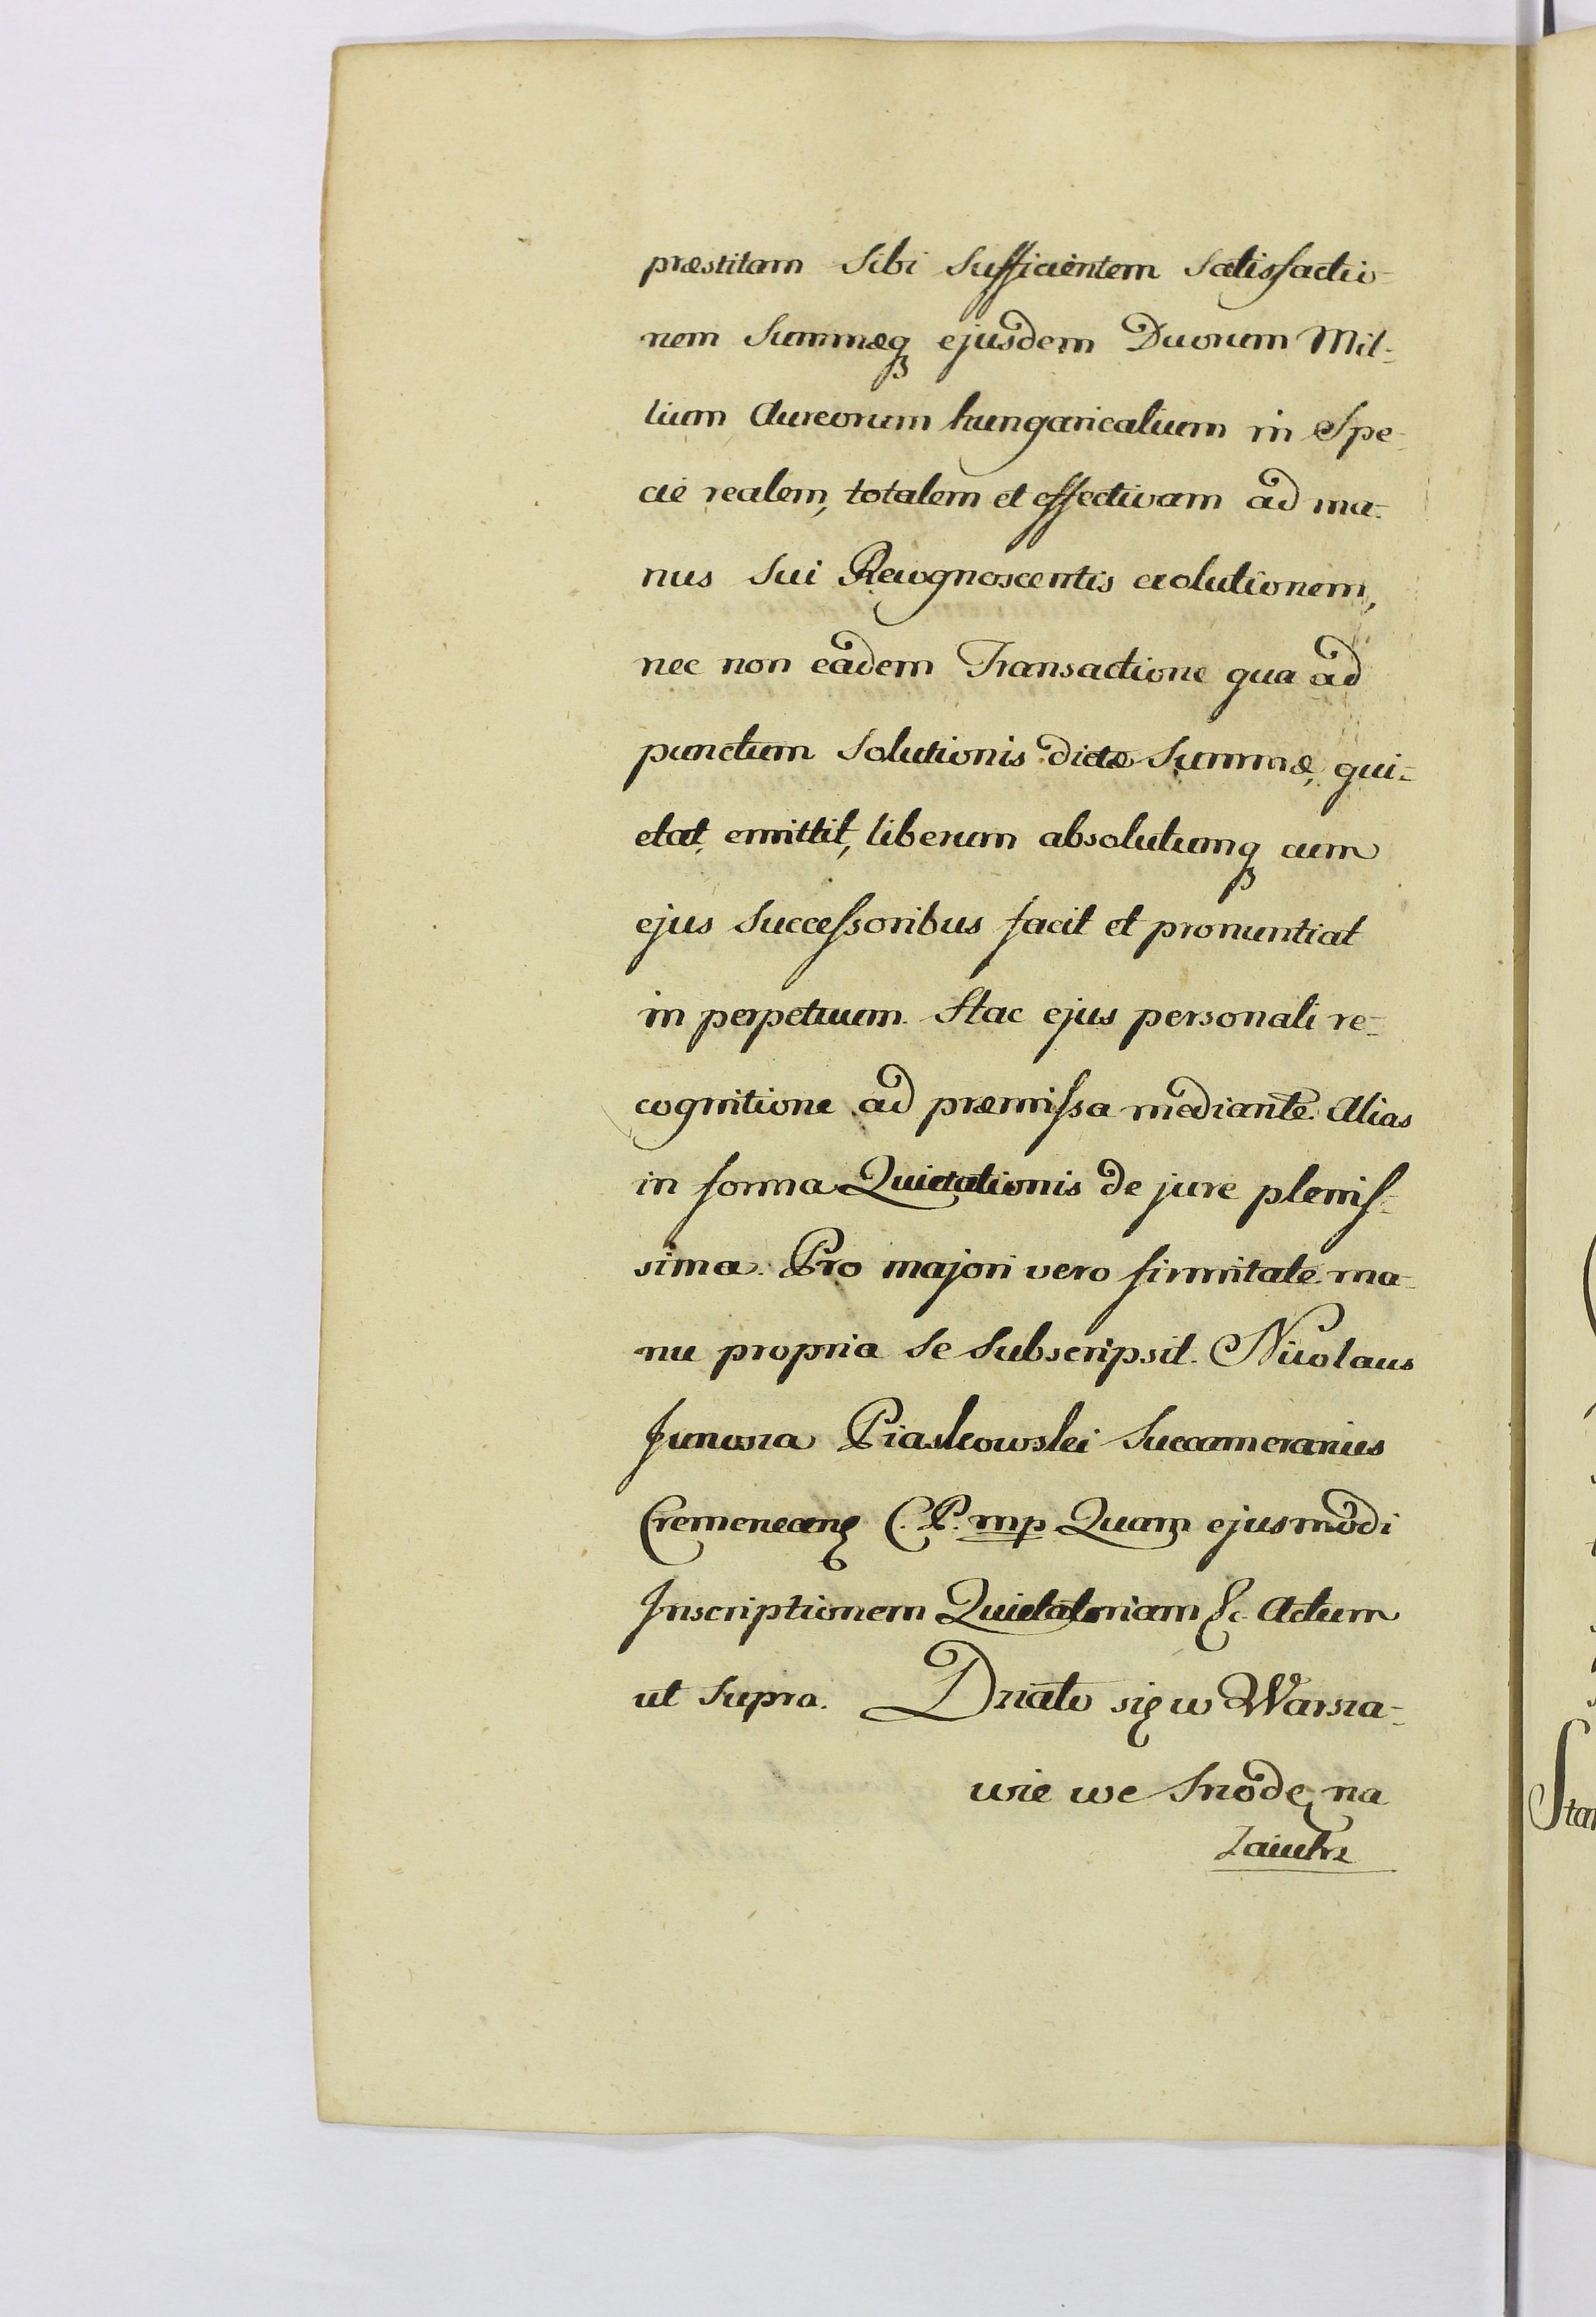 præstitam sibi sufficientem satisfactio-
nem summæq₃ ejusdem Duorum Mil-
lium Aureorum hungaricalium in Spe-
cie realem, totalem et effectivam ad ma-
nus sui Recognoscentis exolutionem,
nec non eadem Transactione qua ad
punctum solutionis dictæ summæ, qui-
etat, emittit, liberum absolutumq₃ cum
ejus succeſsoribus facit et pronuntiat
in perpetuum. Hac ejus personali re-
cognitione ad præmiſsa mediante. Alias
in forma Quietationis de jure pleniſ-
sima. Pro majori vero firmitate ma-
nu propria se subscripsit. Nicolaus
Junosza Piaskowski Succamerarius
Cremenecens C. P. mp Quam ejusmodi
Inscriptionem Quietatoriam &c. Actum
ut supra. Działo się w Warsza-
wie we Srzodę na
Zaiutrz
Sta